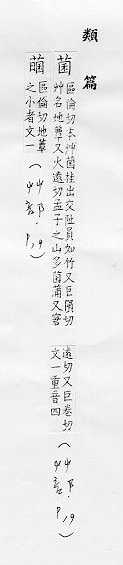 類篇
菌 區倫切去艸菌桂出交阯員如竹又巨隕切
艸名地蕈又火遠切孟子之山多菌蒲又窘
遠切又巨卷切
文一重音四(艸部.
艸音.P19)
𦵵 區倫切地蕈
之小者文一(艸部.
艸音.P19)